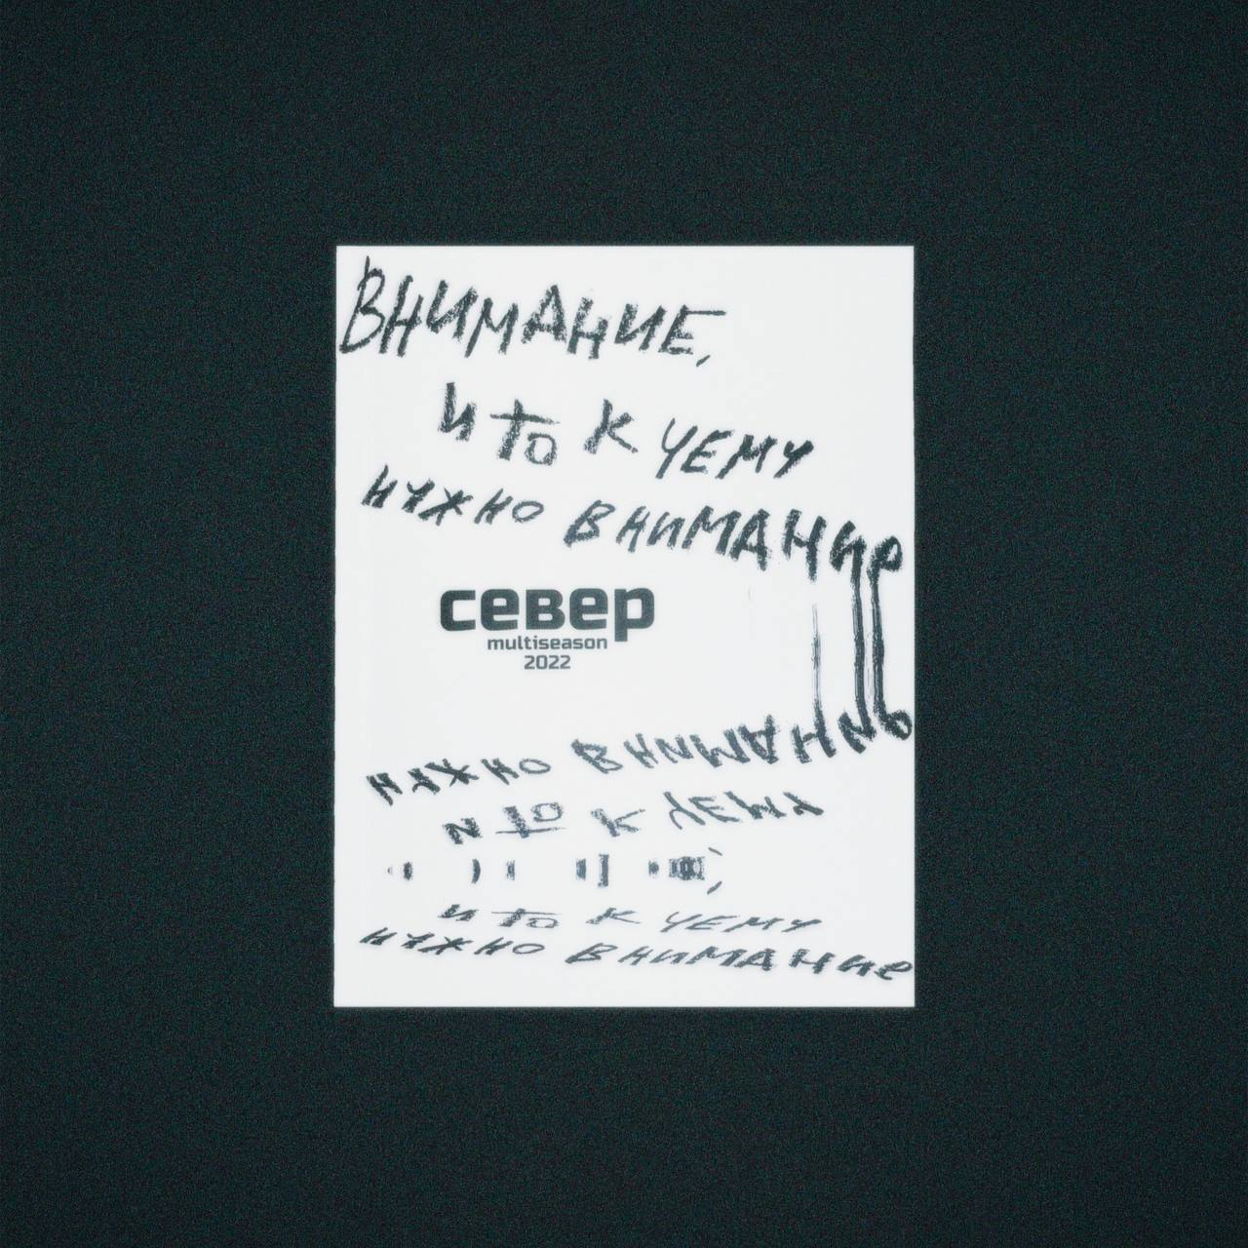 ВНИМАНИЕ,
и то к чему
нужно внимание
север
multiseason
2022
нужно внимание
и то к чему
и то к чему
нужно внимание